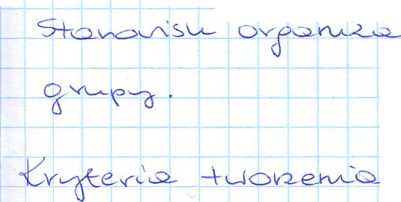 Stanowisk organiza
grupy.
Kryteria tworzenia